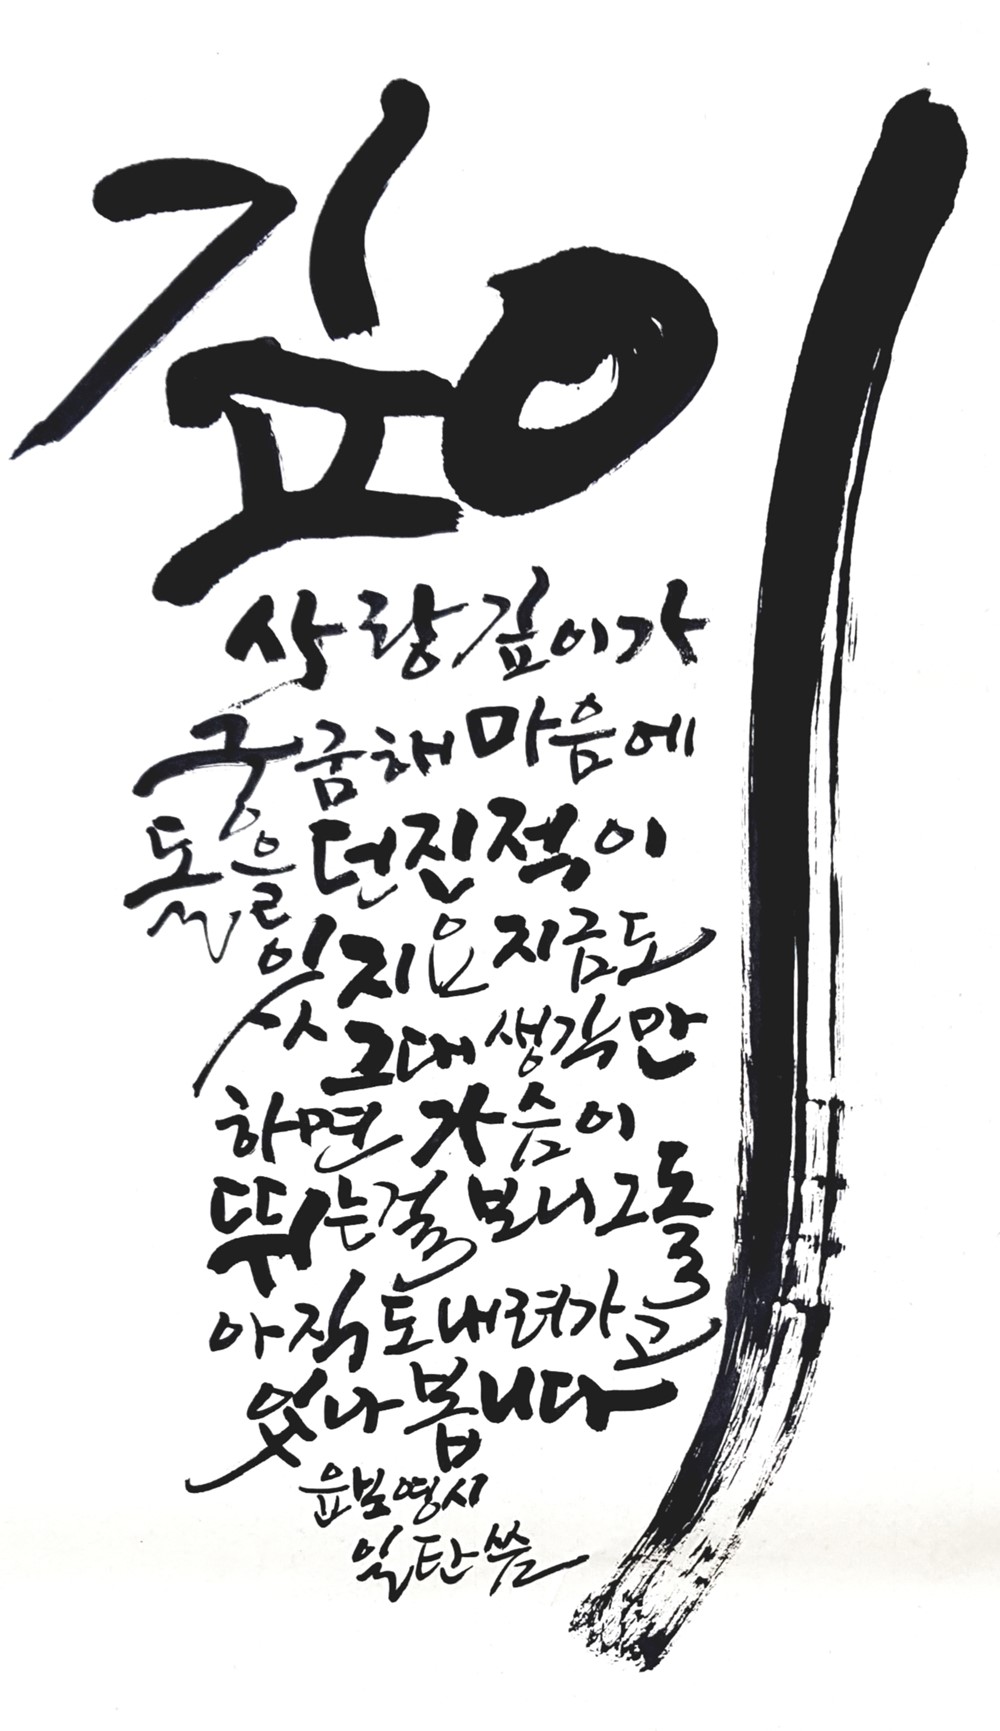 깊이
사랑 깊이가
궁굼해 마음에
돌을 던진적이
잇지요 지금도
그대 생각만
하면 가슴이
뛰는걸 보니 그 돌
아직도 내려가고
있나 봅니다
윤보영 시
일탄 쓸